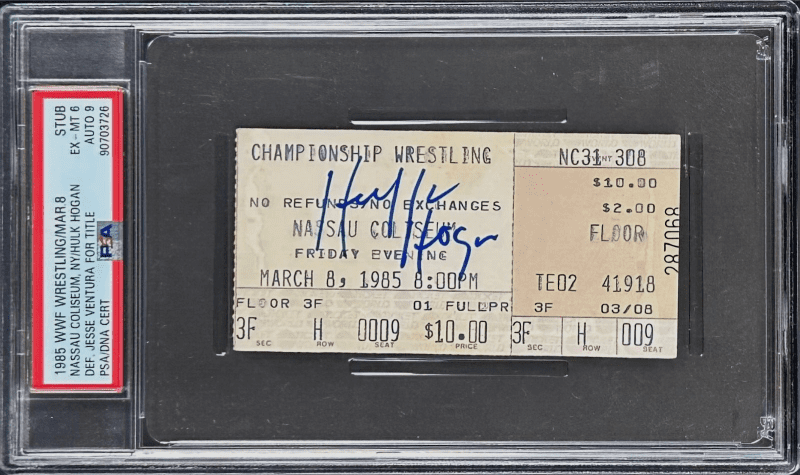 1985 WWF WRESTLING/MAR 8 STUB
NASSAU COLISEUM, NY/HULK HOGAN EX-MT 6
DEF. JESSE VENTURA FOR TITLE AUTO 9
PSA/DNA CERT 90703726
PSA
CHAMPIONSHIP WRESTLING
NO REFUNDS/NO EXCHANGES
NASSAU COLISEUM
FRIDAY EVENING
MARCH 8, 1985 8:00PM
FLOOR 3F 01 FULLPR
3F H 0009 $10.00
SEC ROW SEAT PRICE
Hulk Hogan
NC31 308
$10.00
$2.00
FLOOR
TE02 41918
3F 03/08
3F H 009
SEC ROW SEAT
287068